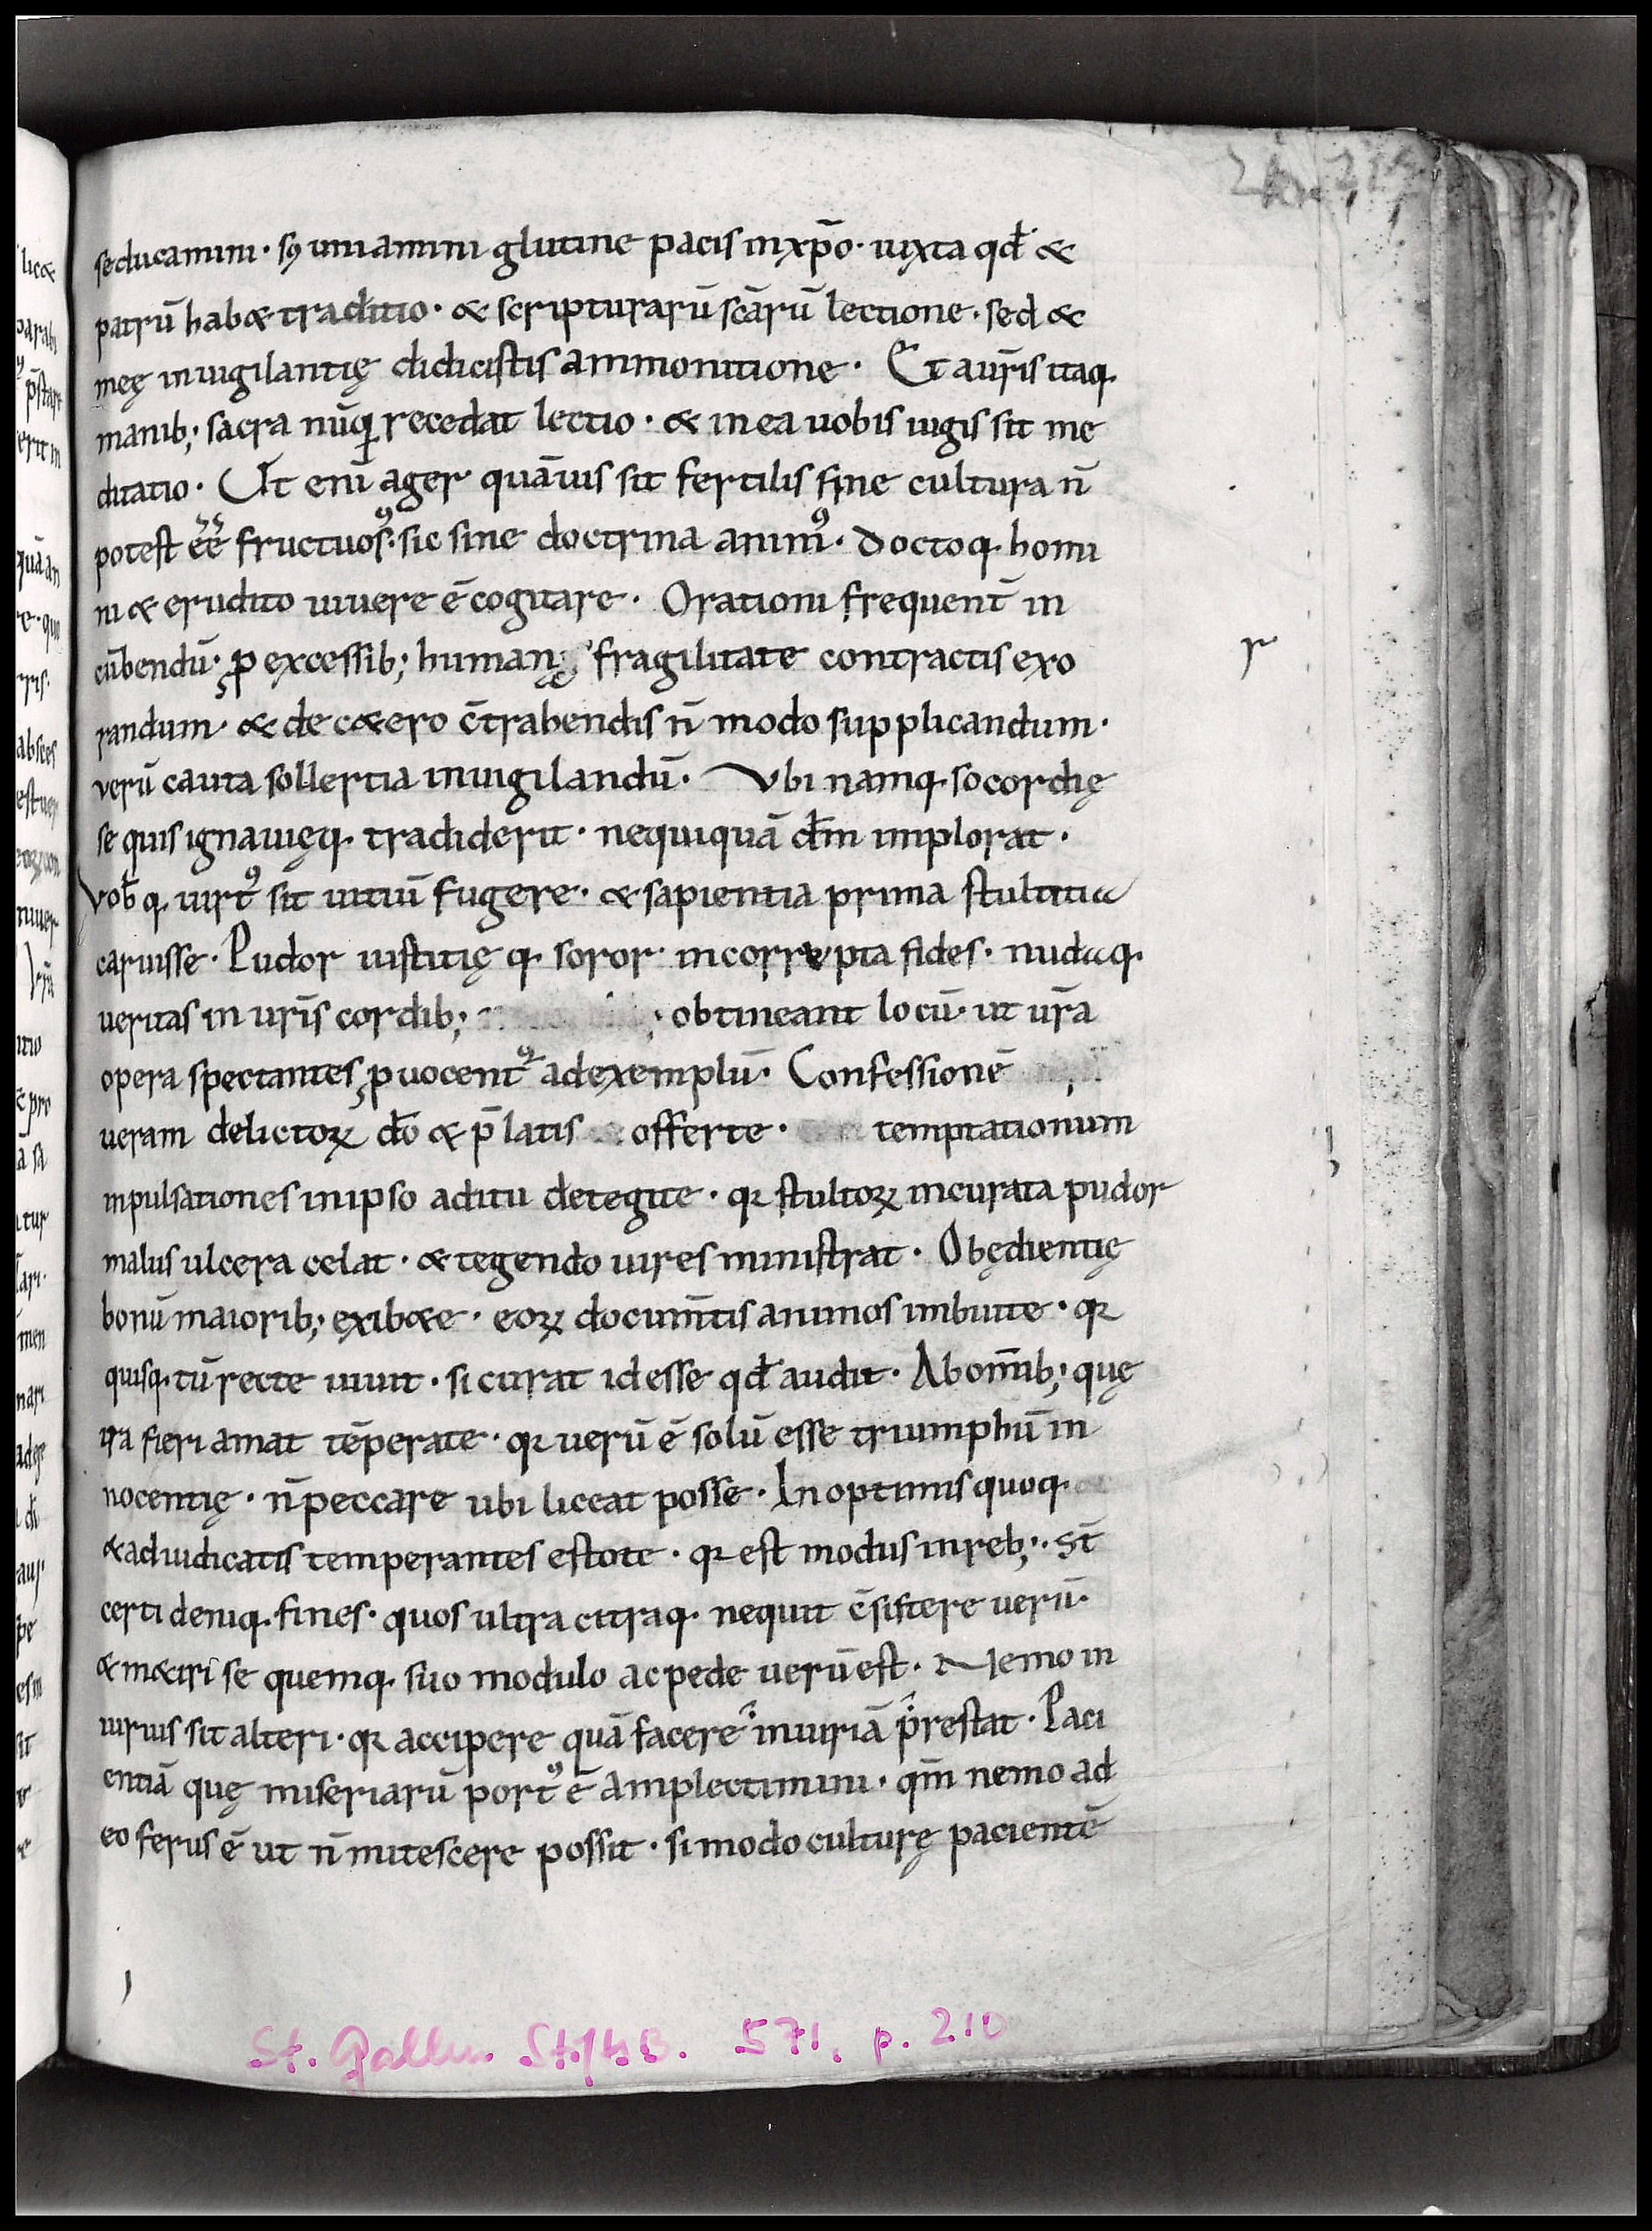 seducamini · sꝫ uniamini glutine pacis in xp̄o · iuxta qd̄ &
patrū hab& traditio · & scripturarū scārū lectione · sed &
meę inuigilantię didicistis ammonitione · Et a ur̄is itaq·
manib; sacra nūq̄ recedat lectio · & in ea uobis iugis sit me
ditatio · Ut enī ager quāuis sit fertilis sine cultura n̄
potest ēē fructuosꝰ · sic sine doctrina animꝰ · Doctoq· homi
ni & erudito uiuere ē cogitare · Orationi frequent̄ in
cūbendū · ꝓ excessib; humanę fragilitate contractis exo
randum · & de c&ero c̄trahendis n̄ modo supplicandum ·
verū cauta sollertia inuigilandū · Vbi namq· socordię
se quis ignauięq· tradiderit · nequiquā dm̄ implorat ·
Vob̄ q· uirtꝰ sit uitiū fugere · & sapientia prima stultitia
caruisse · Pudor iustitię q· soror · incorrupta fides · nudaq·
ueritas in ur̄is cordib; obtineant locū · ut ur̄a
opera spectantes ꝓuocentꝰ ad exemplū · Confessionē
ueram delictoꝝ dō & p̄latis offerte · temptationum
inpulsationes in ipso aditu detegite · qꝛ stultoꝝ incurata pudor
malus ulcera celat · & tegendo uires ministrat · Obędientię
bonū maiorib; exib&e · eoꝝ documt̄is animos imbuite · qꝛ
quisq· tū recte uiuit · si curat id esse qd̄ audit · Ab om̄ib; quę
ira fieri amat tēperate · qꝛ uerū ē solū esse triumphū in
nocentię · n̄ peccare ubi liceat posse · In optimis quoq·
& adiudicatis temperantes estote · qꝛ est modus in reb; · st̄
certi deniq· fines · quos ultra citraq· nequit c̄sistere uerū ·
& m&iri se quemq· suo modulo ac pede uerū est · Nemo in
iurius sit alteri · qꝛ accipere quā facere iniuriā prestat · Paci
entiā quę miseriarū portꝰ ē amplectimini · qm̄ nemo ad
eo ferus ē ut n̄ mitescere possit · si modo culturę pacientē
St. Gallen StiftsB. 571, p. 210